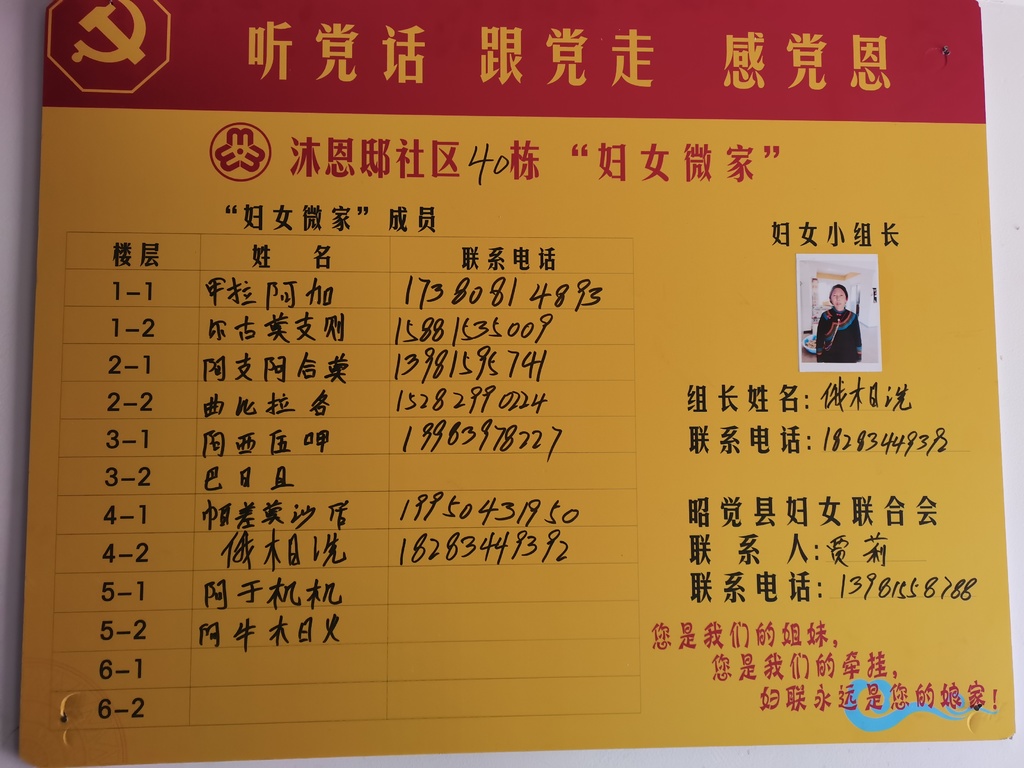 听党话 跟党走 感党恩
沐恩邸社区40栋 “妇女微家”
“妇女微家” 成员
楼层 姓 名 联系电话
1-1 甲拉阿加 17380814893
1-2 尔古莫支则 15881535009
2-1 阿支阿合莫 13981595741
2-2 曲比拉各 15282990224
3-1 阿西伍呷 19983978227
3-2 巴日且
4-1 差莫沙 19950431950
4-2 俄木日洗 18283449392
5-1 阿于机机
5-2 阿牛木日火
6-1
6-2
妇女小组长
组长姓名: 俄木日洗
联系电话: 18283449392
昭觉县妇女联合会
联 系 人: 贾莉
联系电话: 13981558788
您是我们的姐妹,
您是我们的牵挂,
妇联永远是您的娘家!